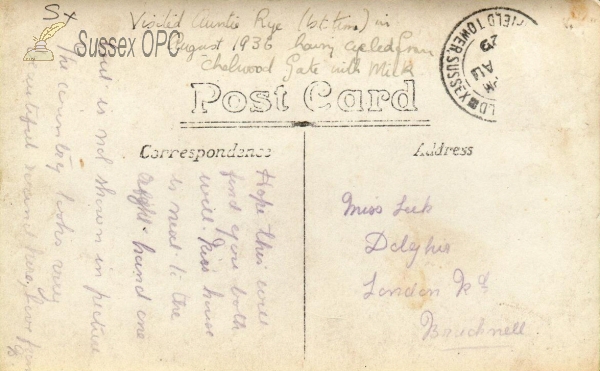 Sx
Visited Auntie Rye (1st time) in
August 1936 having cycled from
Chelwood Gate with Milk
Sussex OPC
FIELD TOWER, SUSSEX
Post Card
Correspondence
Address
Hope this will
find you both
well. This house
is next to the
right hand one
but is not shown in picture
The country looks very
beautiful round here, love from
Miss Luk
London Rd
Bracknell